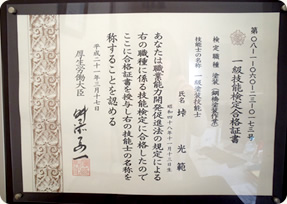 第〇八-一-〇六〇-二三-〇一七三号
一級技能検定合格証書
検定職種 塗装(鋼橋塗装作業)
技能士の名称 一級塗装技能士
氏名 光範
昭和四十八年十一月十三日生
あなたは職業能力開発促進法の規定による
右の職種に係る技能検定に合格したので
ここに合格証書を授与し右の技能士の名称を
称することを認める
平成二十一年三月十七日
厚生労働大臣